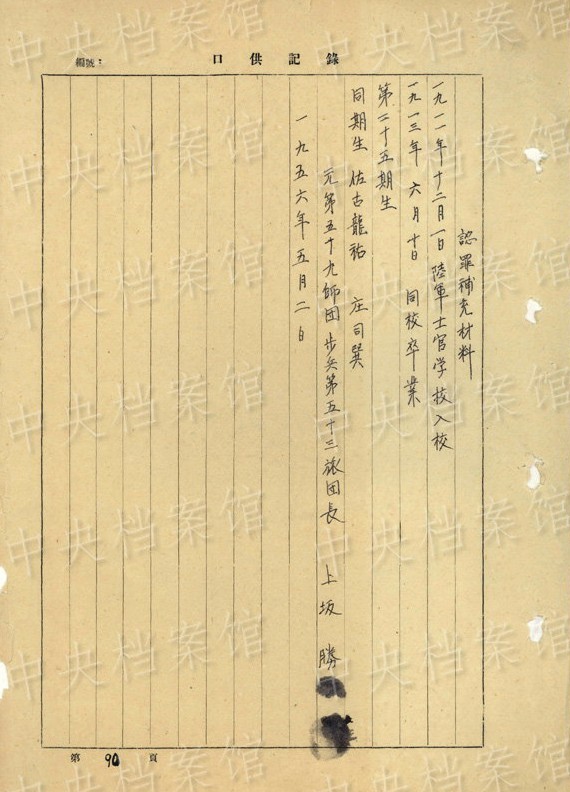 口供記錄
編號：
認罪補充材料
一九一一年十二月一日陸軍士官学校入校
一九一三年 六月十日 同校卒業
第二十五期生
同期生 佐古龍祐 庄司巽
元第五十九師団歩兵第五十三旅団長 上坂 勝
一九五六年五月二日
第 90 頁
中央档案馆